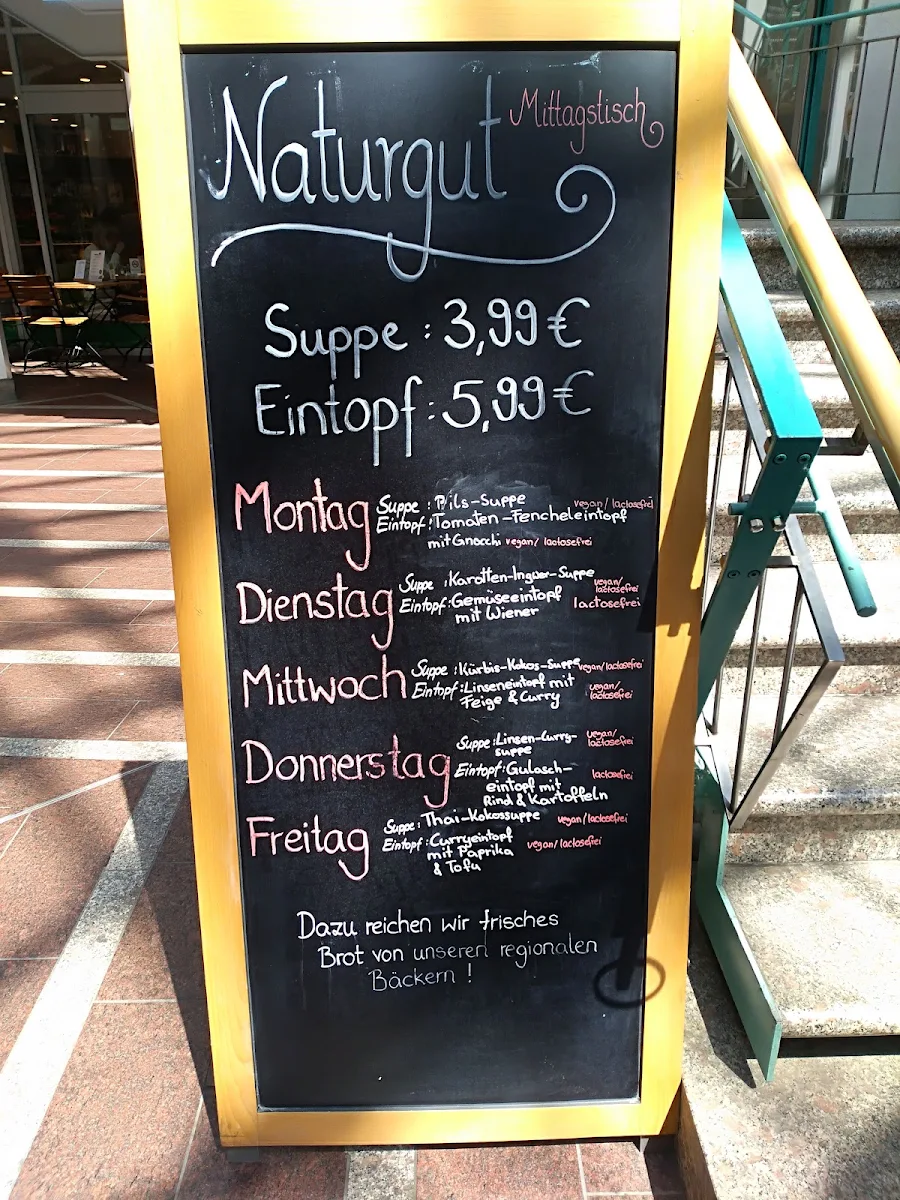 Naturgut Mittagstisch
Suppe : 3,99 €
Eintopf : 5,99 €
Montag
Suppe : Pils-Suppe vegan/ lactosefrei
Eintopf : Tomaten-Fencheleintopf
mit Gnocchi vegan/ lactosefrei
Dienstag
Suppe : Karotten-Ingwer-Suppe vegan/
lactosefrei
Eintopf : Gemüseeintopf lactosefrei
mit Wiener
Mittwoch
Suppe : Kürbis-Kokos-Suppe vegan/lactosefrei
Eintopf : Linseneintopf mit vegan/
Feige & Curry lactosefrei
Donnerstag
Suppe : Linsen-Curry- vegan/
suppe lactosefrei
Eintopf : Gulasch- lactosefrei
eintopf mit
Rind & Kartoffeln
Freitag
Suppe : Thai-Kokossuppe vegan/lactosefrei
Eintopf : Curryeintopf vegan/lactosefrei
mit Paprika
& Tofu
Dazu reichen wir frisches
Brot von unseren regionalen
Bäckern !